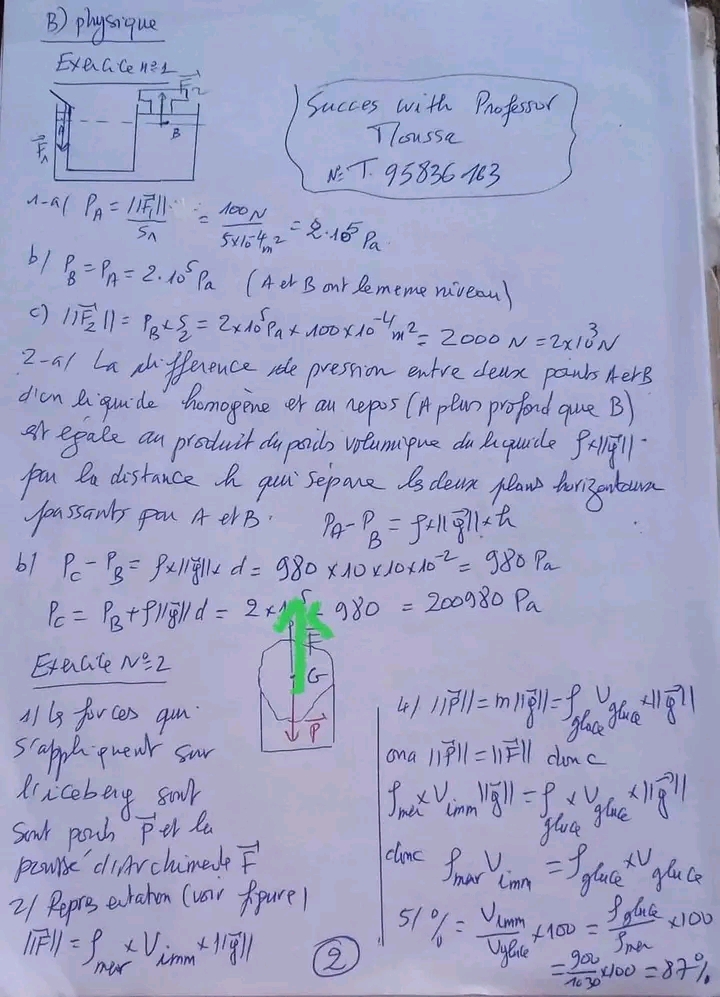 B) physique
Exercice n°=1
F2
A
B
F1
Succes with Professor
Moussa
N°: T. 95836163
1-a/ PA = ||F1||/S1 = 100N/5x10^-4 m² = 2.10^5 Pa
b/ PB = PA = 2.10^5 Pa (A et B ont le meme niveau)
c) ||F2|| = PB x S2 = 2x10^5 Pa x 100x10^-4 m² = 2000 N = 2x10^3 N
2-a/ La difference de pression entre deux points A et B
d'un liquide homogène et au repos (A plus profond que B)
est égale au produit du poids volumique du liquide ρx||g||
par la distance h qui sépare les deux plans horizontaux
passants par A et B. PA - PB = ρx||g||x h
b/ PC - PB = ρx||g||x d = 980 x10x10x10^-2 = 980 Pa
PC = PB + ρ||g||d = 2x10^5 980 = 200980 Pa
Exercice N°=2
F
G
P
1/ les forces qui
s'appliquent sur
l'iceberg sont
sont poids P et la
poussé d'Archimede F
2/ Representation (voir figure)
||F|| = ρmer x Vimm x ||g||
4/ ||P|| = m||g|| = ρglace Vglace x||g||
ona ||P|| = ||F|| donc
ρmer x Vimm ||g|| = ρglace x Vglace x||g||
donc ρmer Vimm = ρglace x Vglace
5/ % = Vimm/Vglace x100 = ρglace/ρmer x100
= 900/1030 x100 = 87%
2